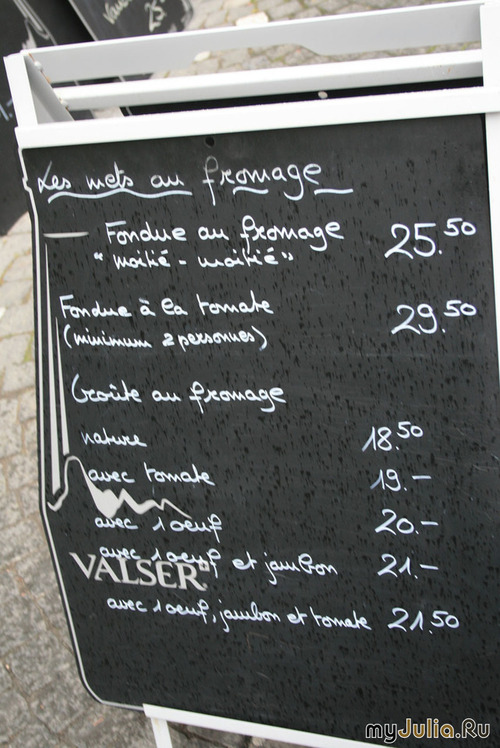 Les mets au fromage
Fondue au fromage 25.50
"moitié - moitié"
Fondue à la tomate 29.50
(minimum 2 personnes)
Croûte au fromage
nature 18.50
avec tomate 19.-
avec 1 oeuf 20.-
avec 1 oeuf et jambon 21.-
VALSER
avec 1 oeuf, jambon et tomate 21.50
myJulia.Ru